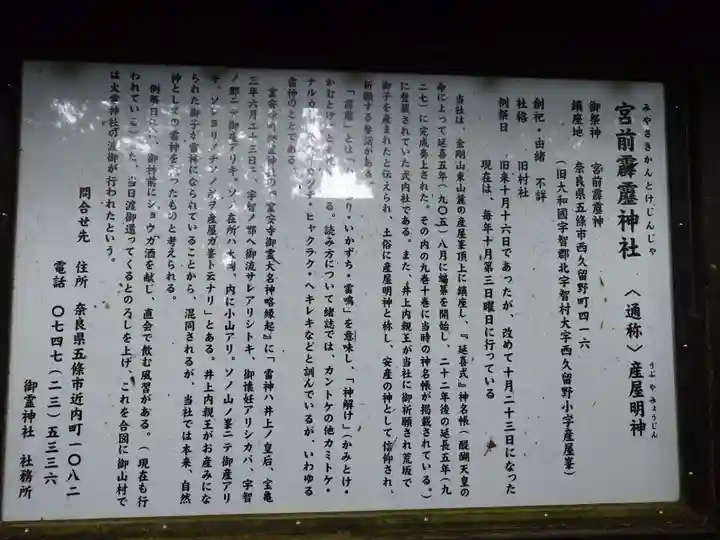 みやさきかんとけじんじゃ
宮前霹靂神社 〈通称〉産屋明神
うぶやみょうじん
御祭神 宮前霹靂神
鎮座地 奈良県五條市西久留野町四一六
(旧大和國宇智郡北宇智村大字西久留野小字産屋峯)
創祀・由緒 不詳
社格 旧村社
例祭日 旧来十月十六日であったが、改めて十月二十三日になった
現在は、毎年十月第三日曜日に行っている
当社は、金剛山東山麓の産屋峯頂上に鎮座し、『延喜式』神名帳(醍醐天皇の
命によって延喜五年(九〇五)八月に編纂を開始し、二十二年後の延長五年(九
二七)に完成奏上された。その内の九巻十巻に当時の神名帳が掲載されている。)
に登載されていた式内社である。また、井上内親王が当社に御祈願され荒坂で
御子を産まれたと伝えられ、土俗に産屋明神と称し、安産の神として信仰され、
祈願する参詣がある。
「霹靂」とは「
りいかずち・雷鳴」を意味し、「神解け」(かみとけ・
かむとけ)
る。読み方について諸誌では、カントケの他カミトケ・
ナルカミ
ヒャクラク・ヘキレキなどと訓んでいるが、いわゆる
雷神のことである。
霊安寺町御霊神社の『霊安寺御霊大名神略縁起』に「雷神ハ井上ノ皇后、宝亀
三年六月二十三日ニ、宇智ノ郡ヘ御流サレアリシトキ、御懐妊アリシカバ、宇智
ノ郡ニテ御産アリキ、ソノ在所ハ大岡ノ内ニ小山アリ。ソノ山ノ峯ニテ御産アリ
キ、ソレヨリノチソノ
ヲ産屋ガ峯ト云ナリ」とある。井上内親王がお産みにな
られた御子が雷神になられていることから、混同されるが、当社では本来、自然
神としての雷神を祀ったものと考えられる。
例祭日に、御神前にショウガ酒を献じ、直会で飲む風習がある。(現在も行
われている)
当日渡御還ってくるとのろしを上げ、これを合図に御山村で
は火雷神社の渡御が行われたという。
問合せ先 住所 奈良県五條市近内町一〇八二
電話 〇七四七(二三)五三三六
御霊神社 社務所